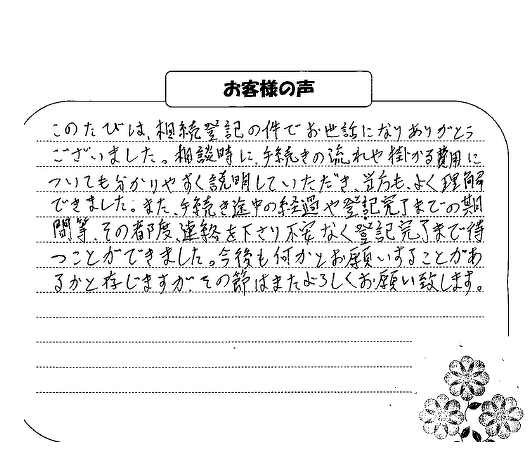 お客様の声
このたびは、相続登記の件でお世話になりありがとう
ございました。相談時に、手続きの流れや掛かる費用に
ついても分かりやすく説明していただき、当方も、よく理解
できました。また、手続き途中の経過や登記完了までの期
間等、その都度、連絡を下さり不安なく登記完了まで待
つことができました。今後も何かとお願いすることがあ
るかと存じますが、その節はまたよろしくお願い致します。